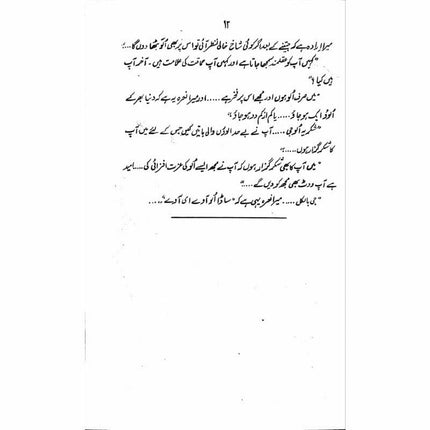 ۱۲
میرا ارادہ ہے کہ جیتنے کے بعد اگر کوئی شاخ خالی نظر آئی تو اس پر بھی الّو بٹھا دوں گا.....
"کہیں آپ کو عقلمند سمجھا جاتا ہے اور کہیں آپ حماقت کی علامت ہیں۔ آخر آپ
ہیں کیا؟"
"میں صرف الّو ہوں اور مجھے اس پر فخر ہے..... اور میرا نعرہ یہ ہے کہ دنیا بھر کے
الّوؤ ایک ہو جاؤ..... یا کم از کم دو ہو جاؤ؟"
"شکریہ الّو جی..... آپ نے بے حد الوؤں والی باتیں کیں جس کے لئے میں آپ
کا شکر گزار ہوں.....؟"
"میں آپ کا بھی شکر گزار ہوں کہ آپ نے مجھ ایسے الّو کی عزت افزائی کی..... امید
ہے آپ ووٹ بھی مجھ کو دیں گے....."
"جی بالکل..... میرا نعرہ یہی ہے کہ "ساڈا الّو آوے ای آوے".....